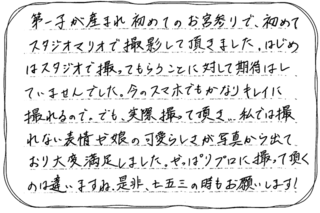 第一子が産まれ初めてのお宮参りで、初めて
スタジオマリオで撮影して頂きました。はじめ
はスタジオで撮ってもらうことに対して期待はし
ていませんでした。今のスマホでもかなりキレイに
撮れるので。でも、実際撮って頂き…私では撮
れない表情や娘の可愛らしさが写真から出て
おり大変満足しました。やっぱりプロに撮って頂く
のは違いますね。是非、七五三の時もお願いします!